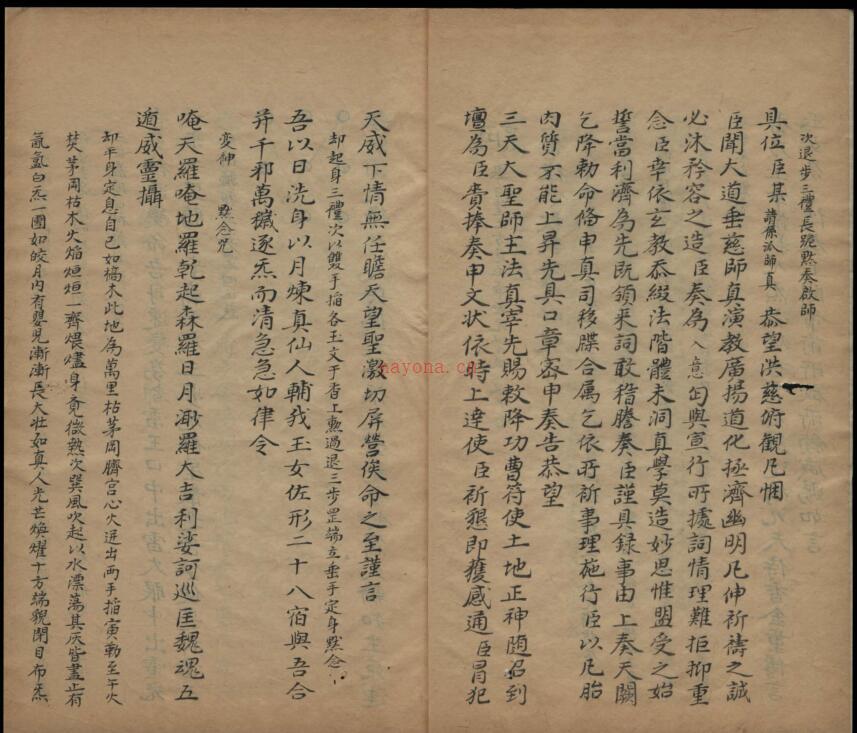 次退步三禮長跪黙奏啟師
具位臣某請係派師真恭望洪慈俯觀凡悃
臣聞大道垂慈師真演教廣揚道化拯濟幽明凡伸祈禱之誠
必沐矜容之造臣奏為入意匄與宣行所據詞情理難拒抑重
念臣幸依玄教忝綴法階體未洞真學莫造妙思惟盟受之始
誓當利濟為先既領来詞敢稽謄奏臣謹具録事由上奏天闕
乞降勅命備申真司移牒合属乞依所祈事理施行臣以凡胎
肉質不能上昇先具口章密申奏告恭望
三天大聖師主法真宰先賜敕降功曹符使土地正神隨召到
壇為臣賫捧奏申文状依時上達使臣祈懇即獲感通臣冒犯
天威下情無任瞻天望聖激切屏營俟命之至謹言
却起身三禮次以雙手搯各玉文于香上熏過退三步罡端立垂手定身黙念
吾以日洗身以月煉真仙人輔我玉女佐形二十八宿與吾合
并千邪萬穢逐炁而清急急如律令
变神 黙念咒
唵天羅唵地羅乾起森羅日月渺羅大吉利娑訶巡匡魏魂五
遁威靈攝
却平身定息自己如槁木此地為萬里枯茅岡臍宫心火迸出两手搯寅勒至午火
焚茅岡枯木火焰烜烜一齊煨燼身竟微熱次巽風吹起以水漂蕩其灰皆盡止有
氤氳白炁一團如皎月内有嬰児漸漸長大壮如真人光芒煥耀十方端貌閉目布炁
nayona.cn